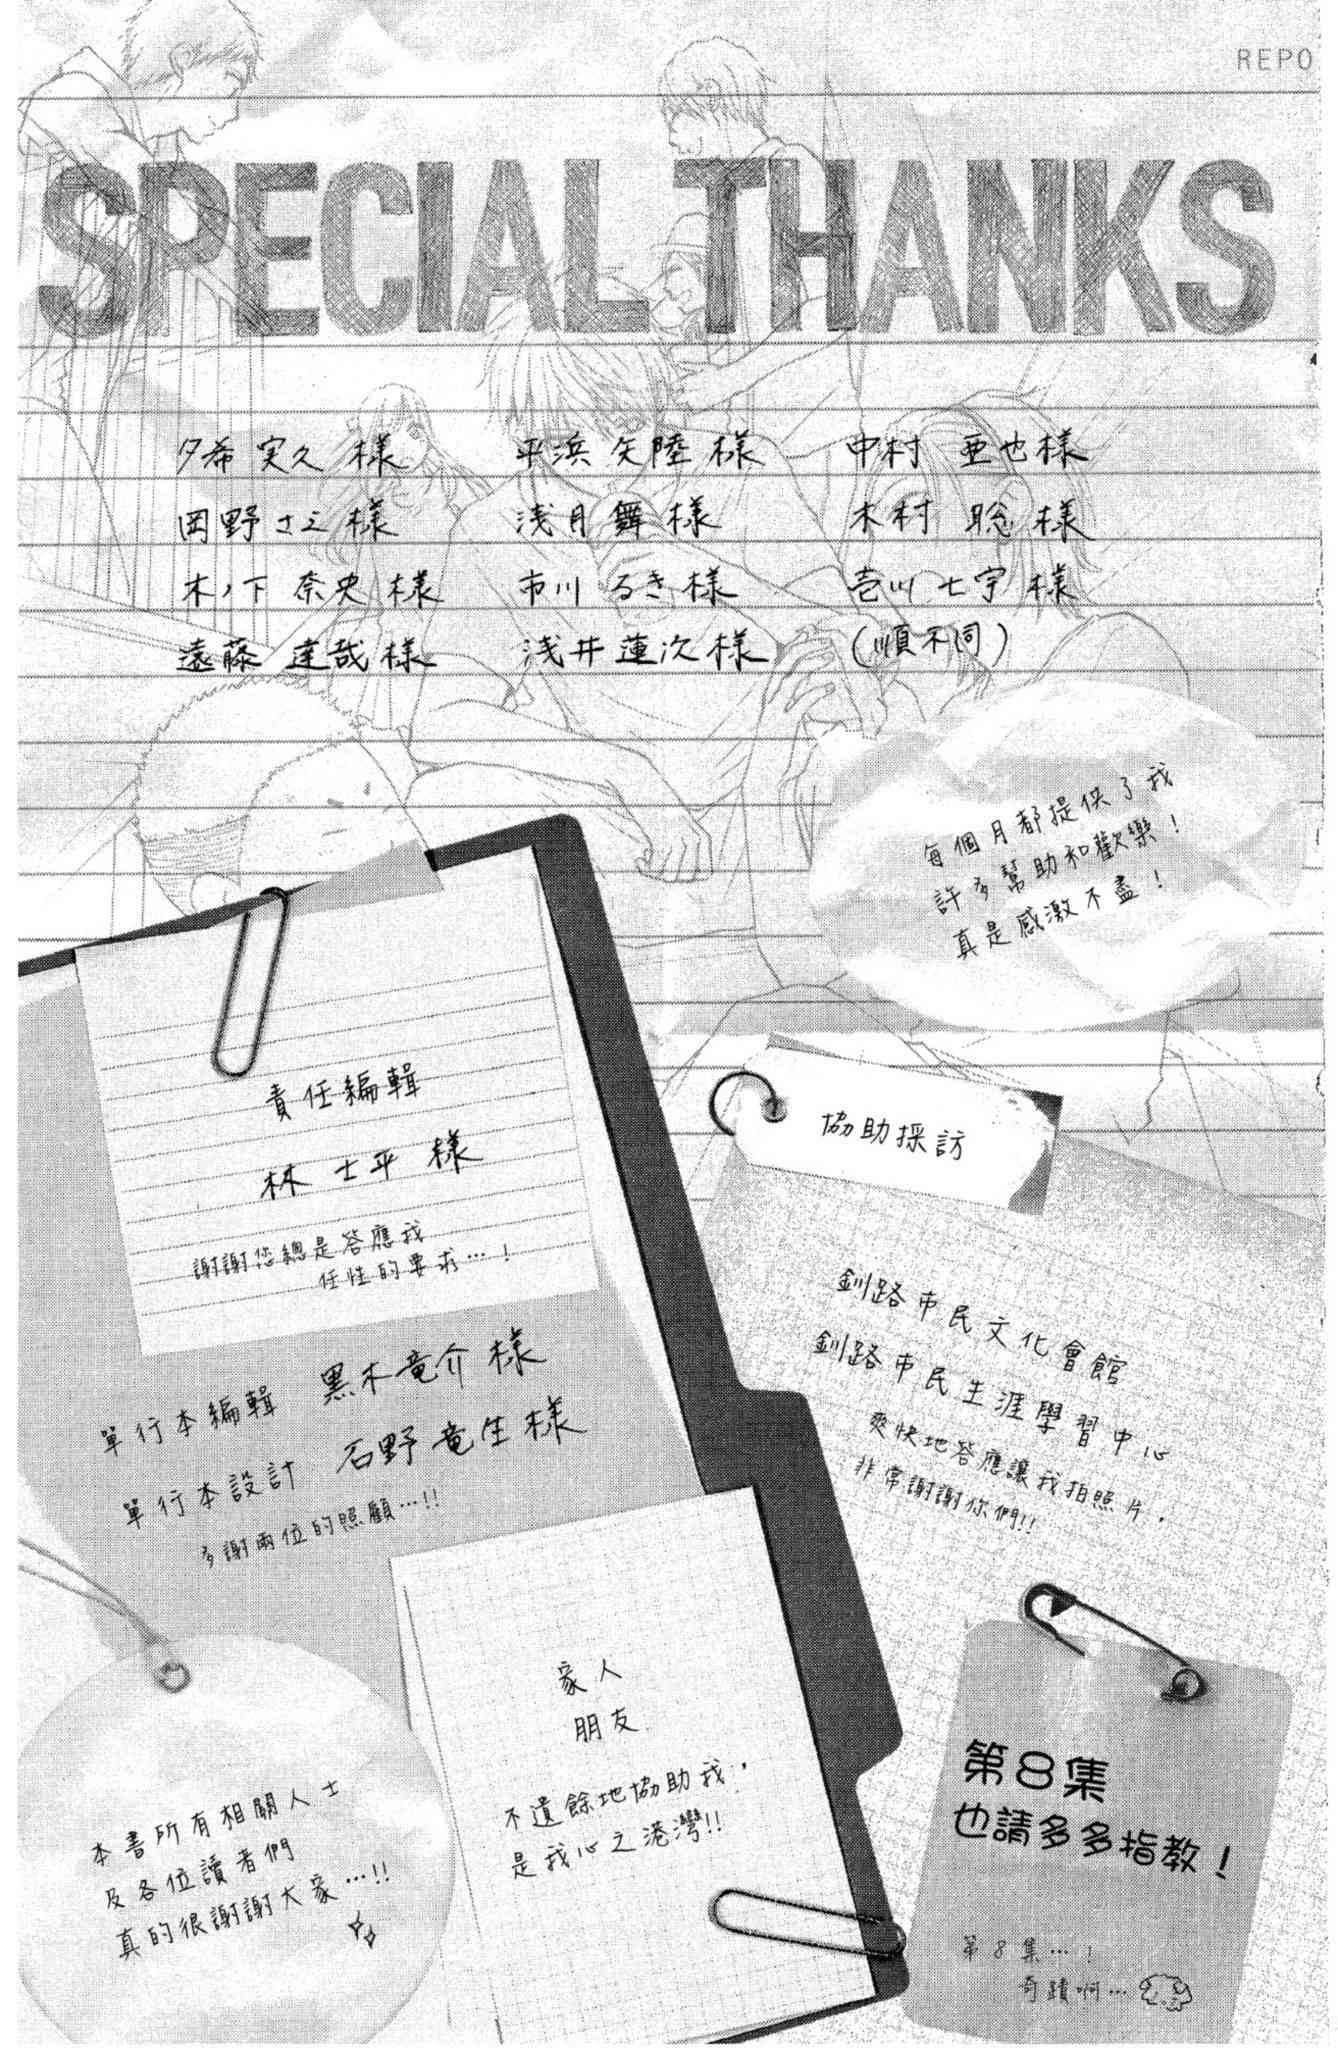 REPO
SPECIAL THANKS
夕希 実久 様 平浜 矢陸 様 中村 亜也 様
岡野 さえ 様 浅月 舞 様 木村 聡 様
木ノ下 奈央 様 市川 るき 様 壱川 七宇 様
遠藤 達哉 様 浅井 蓮次 様 (順不同)
每個月都提供了我
許多幫助和歡樂！
真是感激不盡！
責任編輯
林 士平 樣
謝謝您總是答應我
任性的要求…！
單行本編輯 黑木竜介 様
單行本設計 石野竜生 様
多謝兩位的照顧…!!
協助採訪
釧路市民文化會館
釧路市民生涯學習中心
爽快地答應讓我拍照片，
非常謝謝你們!!
家人
朋友
不遺餘地協助我，
是我心之港灣!!
本書所有相關人士
及各位讀者們
真的很謝謝大家…!!
第8集
也請多多指教！
第8集…！
奇蹟啊…